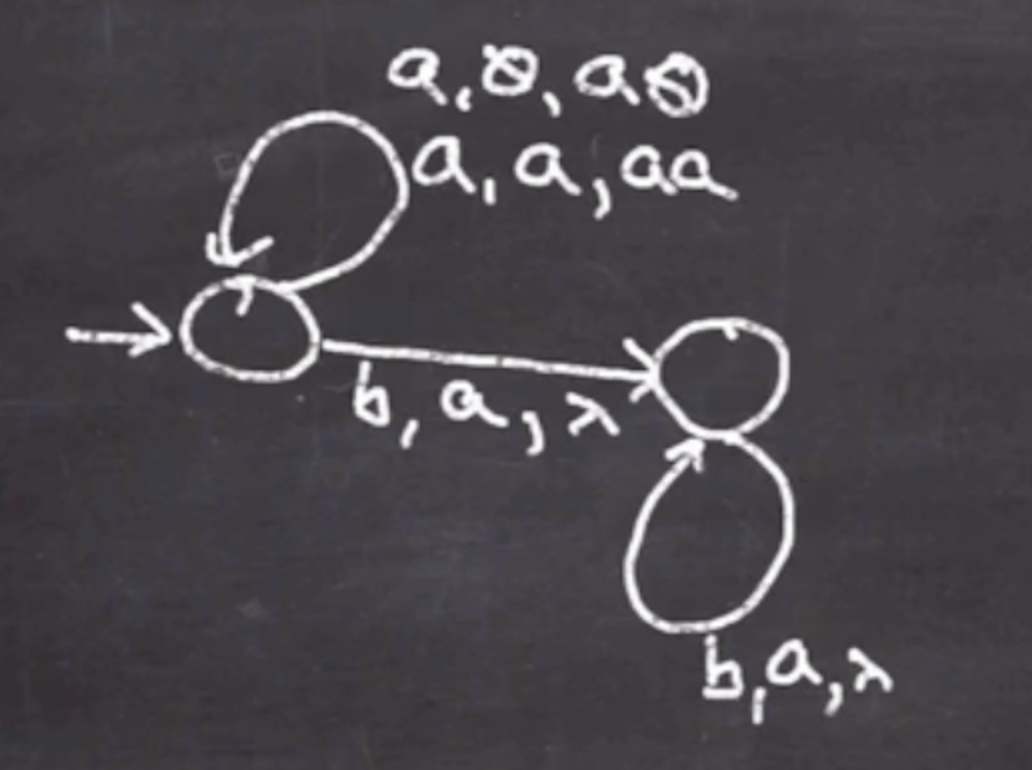 a, ⦸, a⦸
a, a, aa
b, a, λ
b, a, λ